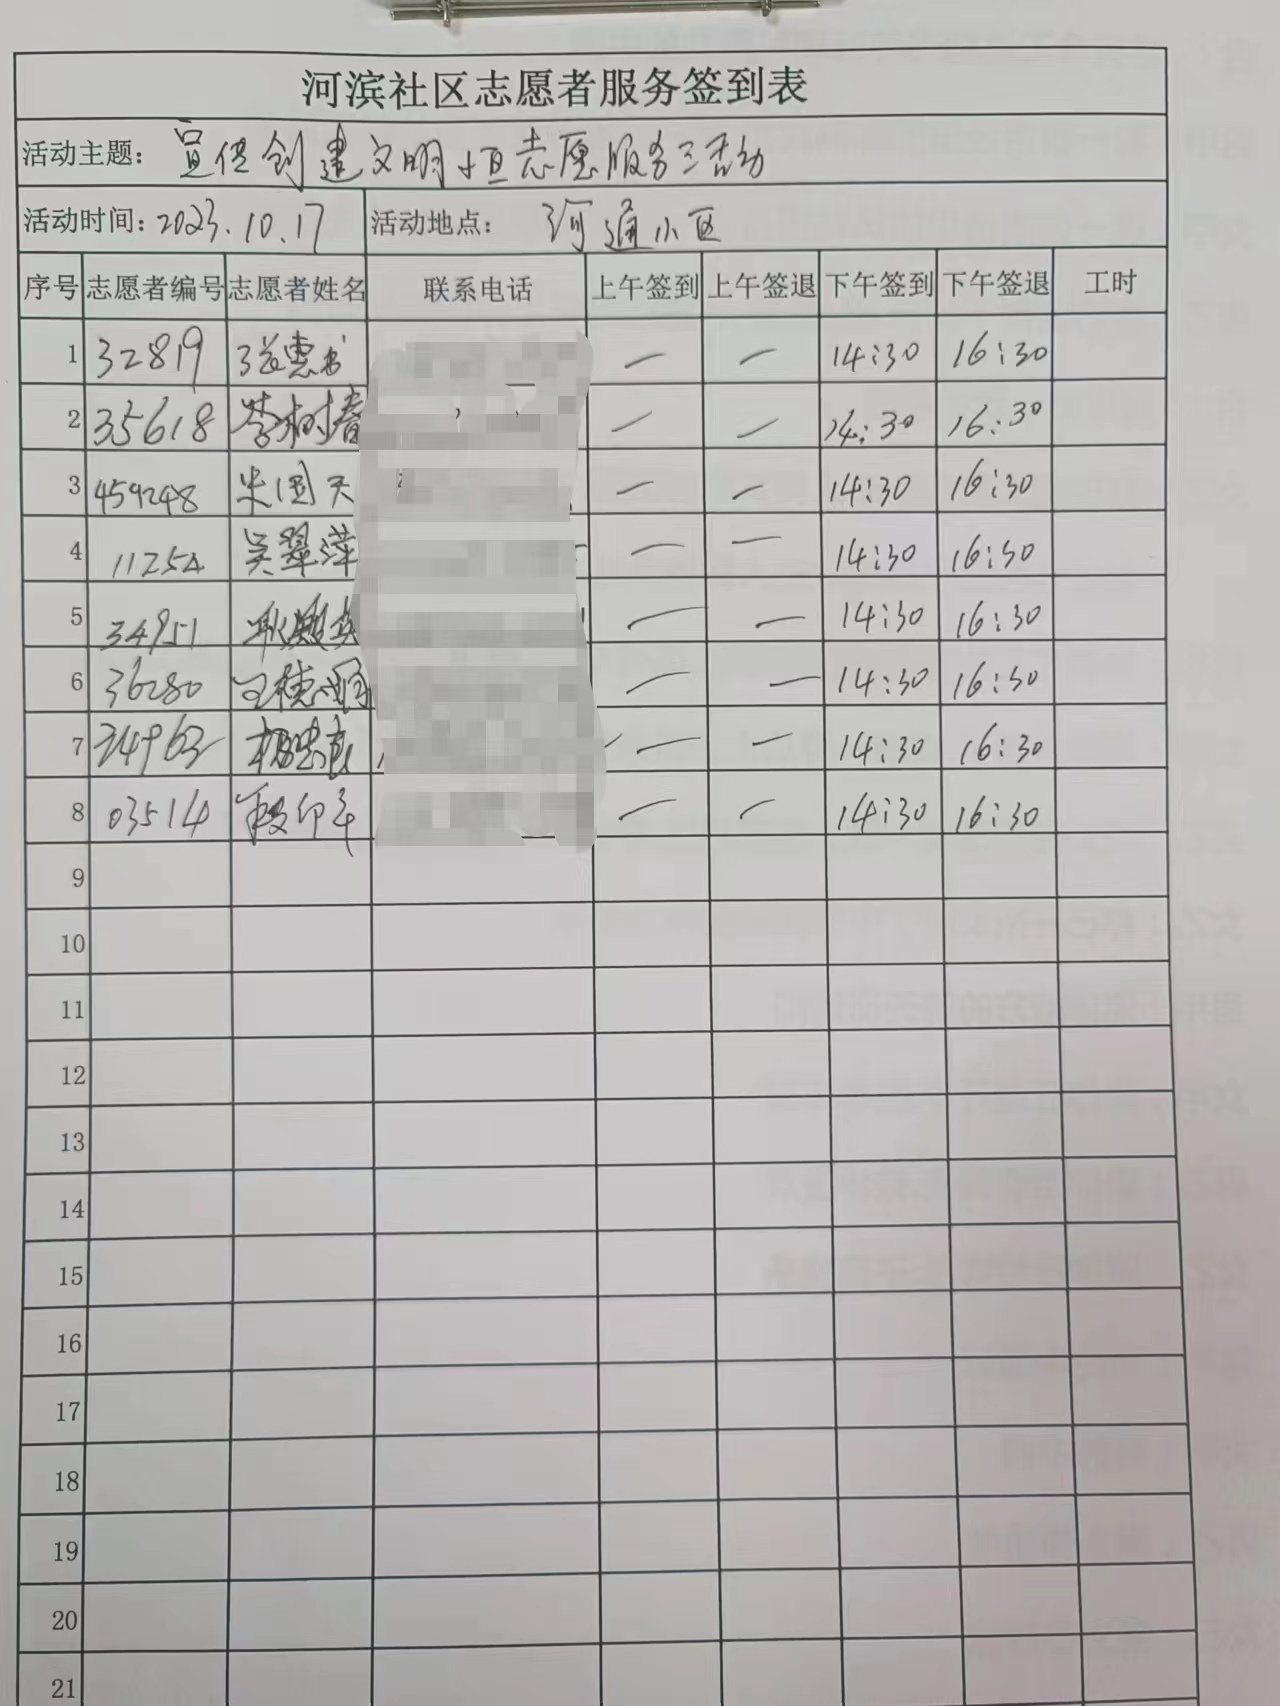 河滨社区志愿者服务签到表
活动主题： 宣传创建文明城志愿服务活动
活动时间：2023.10.17 活动地点： 河通小区
序号 志愿者编号 志愿者姓名 联系电话 上午签到 上午签退 下午签到 下午签退 工时
1 32819 张惠书 — — 14:30 16:30
2 35618 李树春 — — 14:30 16:30
3 459248 米国天 — — 14:30 16:30
4 11254 吴翠萍 — — 14:30 16:30
5 34951 — — 14:30 16:30
6 36280 王德 — — 14:30 16:30
7 34963 杨忠 — — 14:30 16:30
8 03514 段印平 — — 14:30 16:30
9
10
11
12
13
14
15
16
17
18
19
20
21